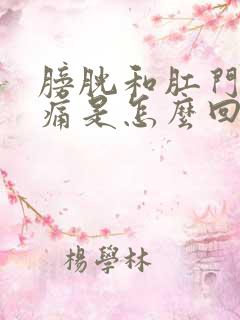 膀胱和肛門
痛是怎麼回
楊學林